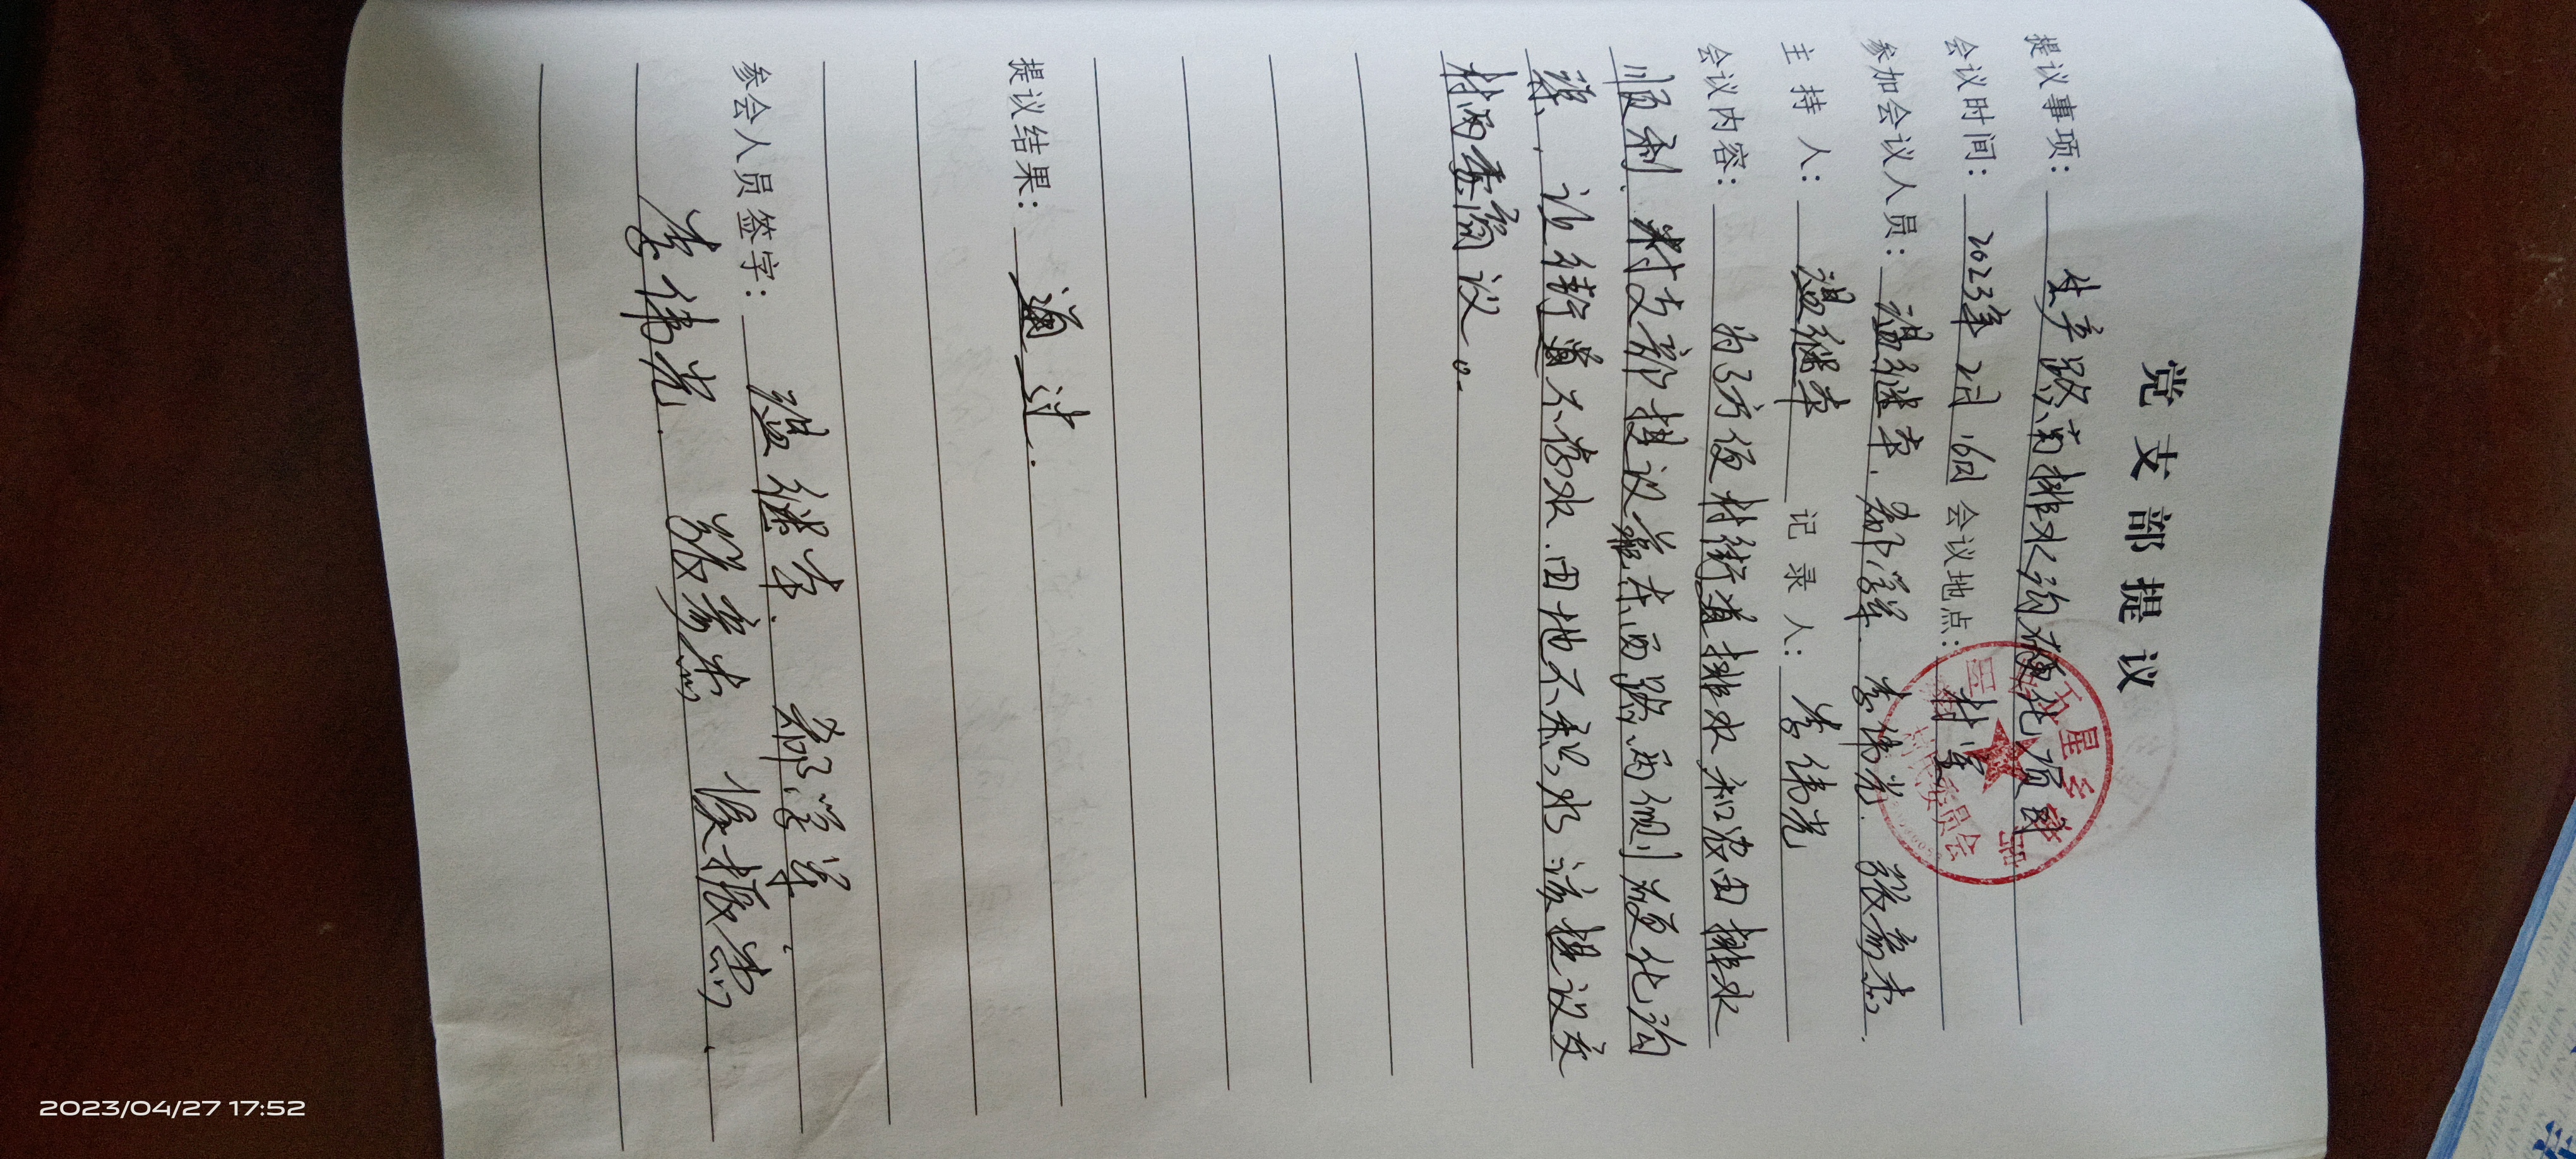 党支部提议
提议事项: 生产路南排水沟硬化项目
会议时间: 2023年2月16日 会议地点: 村室
参加会议人员: 温继本. 郗学军. 李伟光. 张彦杰.
主持人: 温继本 记录人: 李伟光
会议内容: 为了方便村街道排水和农田排水
顺利. 村支部提议靠东西路两侧硬化沟
渠, 让街道不存水.田地不积水 该提议交
村两委商议。
提议结果: 通过.
参会人员签字: 温继本. 郗学军.
李伟光. 张彦杰 侯振杰.
五星乡
村民委员会
2023/04/27 17:52